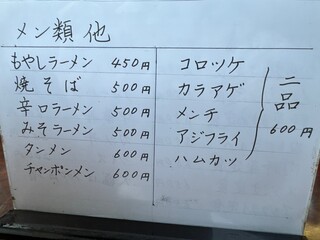 メン類 他
もやしラーメン 450円
焼そば 500円
辛口ラーメン 500円
みそラーメン 500円
タンメン 600円
チャンポンメン 600円
コロッケ
カラアゲ
メンチ
アジフライ
ハムカツ
二品
600円